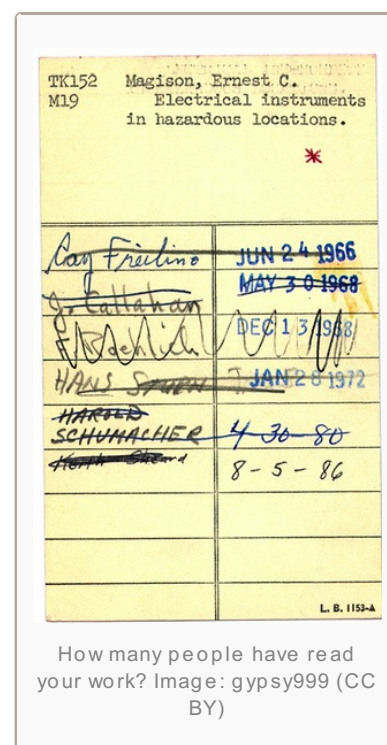 TK152 Magison, Ernest C.
M19 Electrical instruments
in hazardous locations.
*
Ray Freilino JUN 24 1966
J. Callahan MAY 30 1968
DEC 13 1968
HANS JAN 28 1972
HAROLD
SCHUMACHER 4-30-80
Keith Sheard 8-5-86
L. B. 1153-A
How many people have read
your work? Image: gypsy999 (CC
BY)